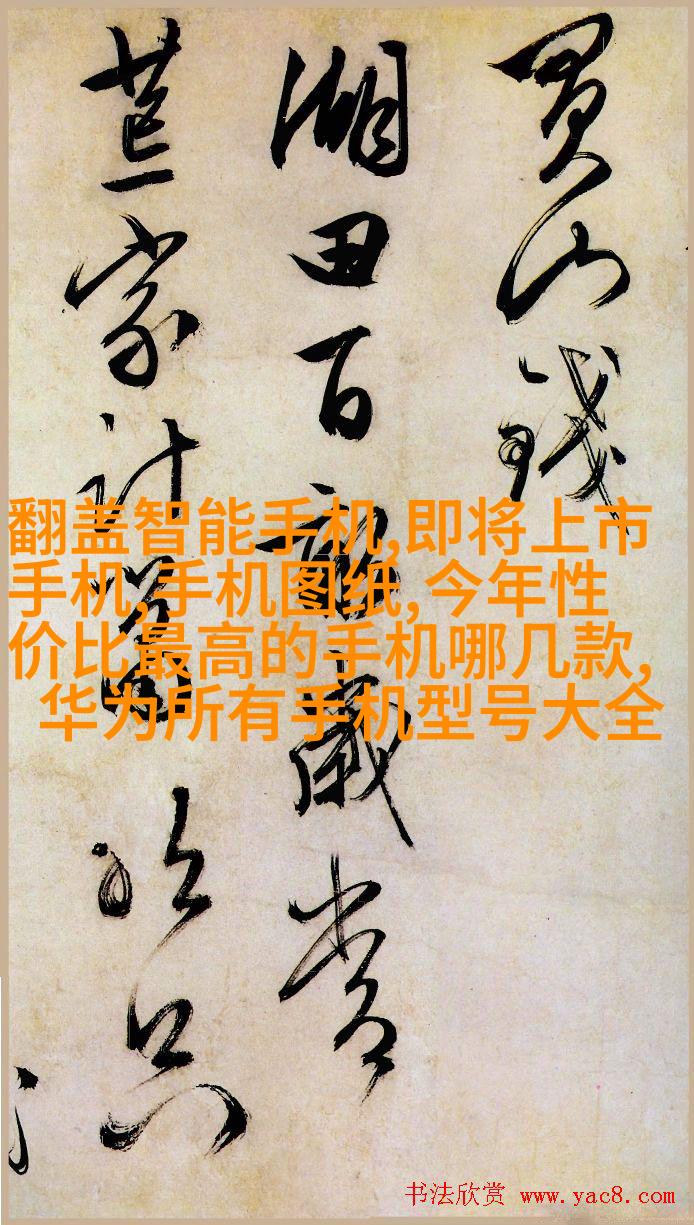 買山錢
湖田百 歲
荒家計 只
翻盖智能手机,即将上市
手机,手机图纸,今年性
价比最高的手机哪几款,
华为所有手机型号大全
书法欣赏 www.yac8.com